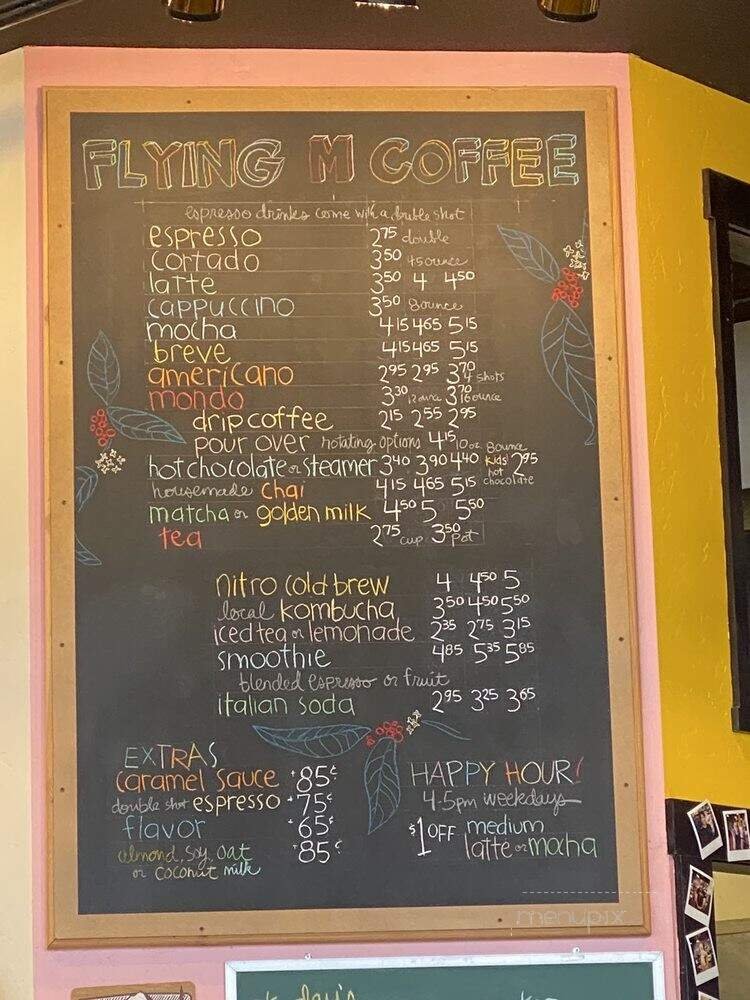 FLYING M COFFEE
espresso drinks come with a double shot
espresso 2.75 double
cortado 3.50 4.5 ounce
latte 3.50 4 4.50
cappuccino 3.50 8 ounce
mocha 4.15 4.65 5.15
breve 4.15 4.65 5.15
americano 2.95 2.95 3.70 4 shots
mondo 3.30 12 ounce 3.70 16 ounce
drip coffee 2.15 2.55 2.95
pour over rotating options 4.15 10 oz.
hot chocolate or steamer 3.40 3.90 4.40 8 ounce kids' hot chocolate 2.95
housemade chai 4.15 4.65 5.15
matcha or golden milk 4.50 5 5.50
tea 2.75 cup 3.50 pot
nitro cold brew 4 4.50 5
local kombucha 3.50 4.50 5.50
iced tea or lemonade 2.35 2.75 3.15
smoothie 4.85 5.35 5.85
blended espresso or fruit
italian soda 2.95 3.25 3.65
EXTRAS
caramel sauce +85¢
double shot espresso +75¢
flavor +65¢
almond, soy, oat +85¢
or coconut milk
HAPPY HOUR!
4-5pm weekdays
$1 OFF medium
latte or mocha
menupix